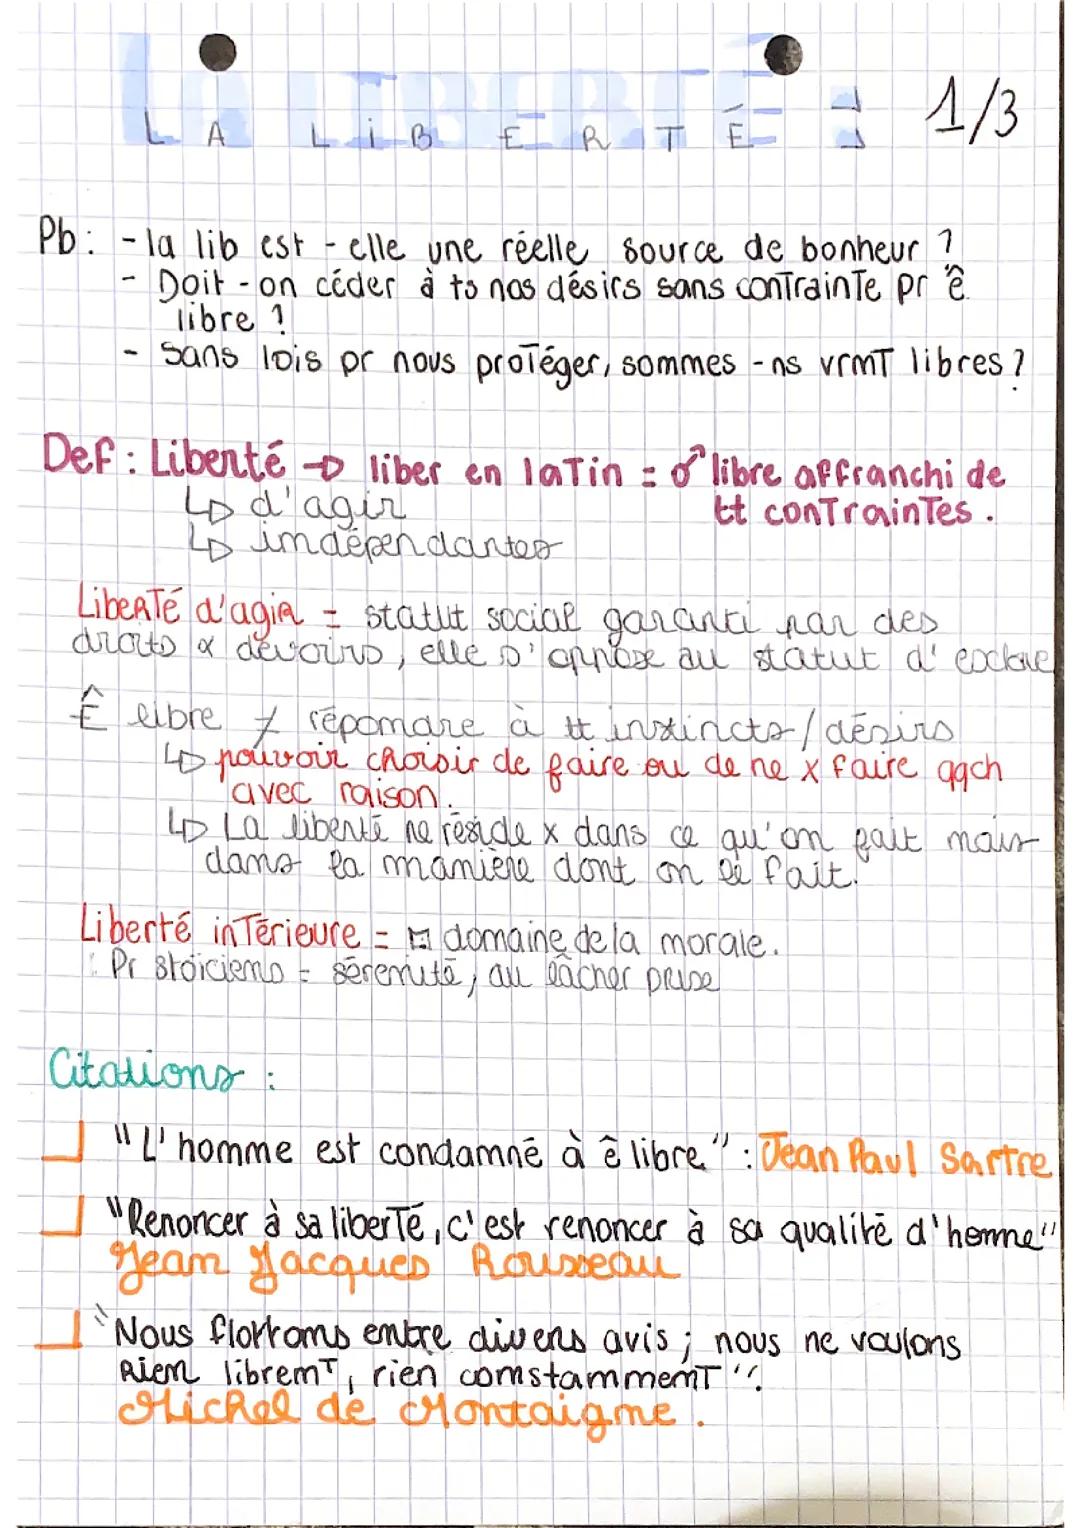 LA LIBERTÉ : 1/3
Pb : - la lib est-elle une réelle source de bonheur ?
- Doit-on céder à ts nos désirs sans contrainte pr ê
libre ?
- Sans lois pr nous protéger, sommes-ns vrmT libres ?
Def : Liberté → liber en latin = ♂ libre affranchi de
↳ d'agir tt contraintes.
↳ indépendantes
Liberté d'agir = statut social garanti par des
droits & devoirs, elle s'oppose au statut d'esclave
Ê libre ≠ répondre à tt instincts / désirs
↳ pouvoir choisir de faire ou de ne x faire qqch
avec raison.
↳ La liberté ne réside x dans ce qu'on fait mais
dans la manière dont on le fait.
Liberté intérieure = domaine de la morale.
Pr stoiciens = sérénité, au lâcher prise
Citations :
"L'homme est condamné à ê libre" : Jean Paul Sartre
"Renoncer à sa liberté, c'est renoncer à sa qualité d'homme"
Jean Jacques Rousseau
"Nous flottons entre divers avis ; nous ne voulons
rien libremT, rien constammemT".
Michel de Montaigne.